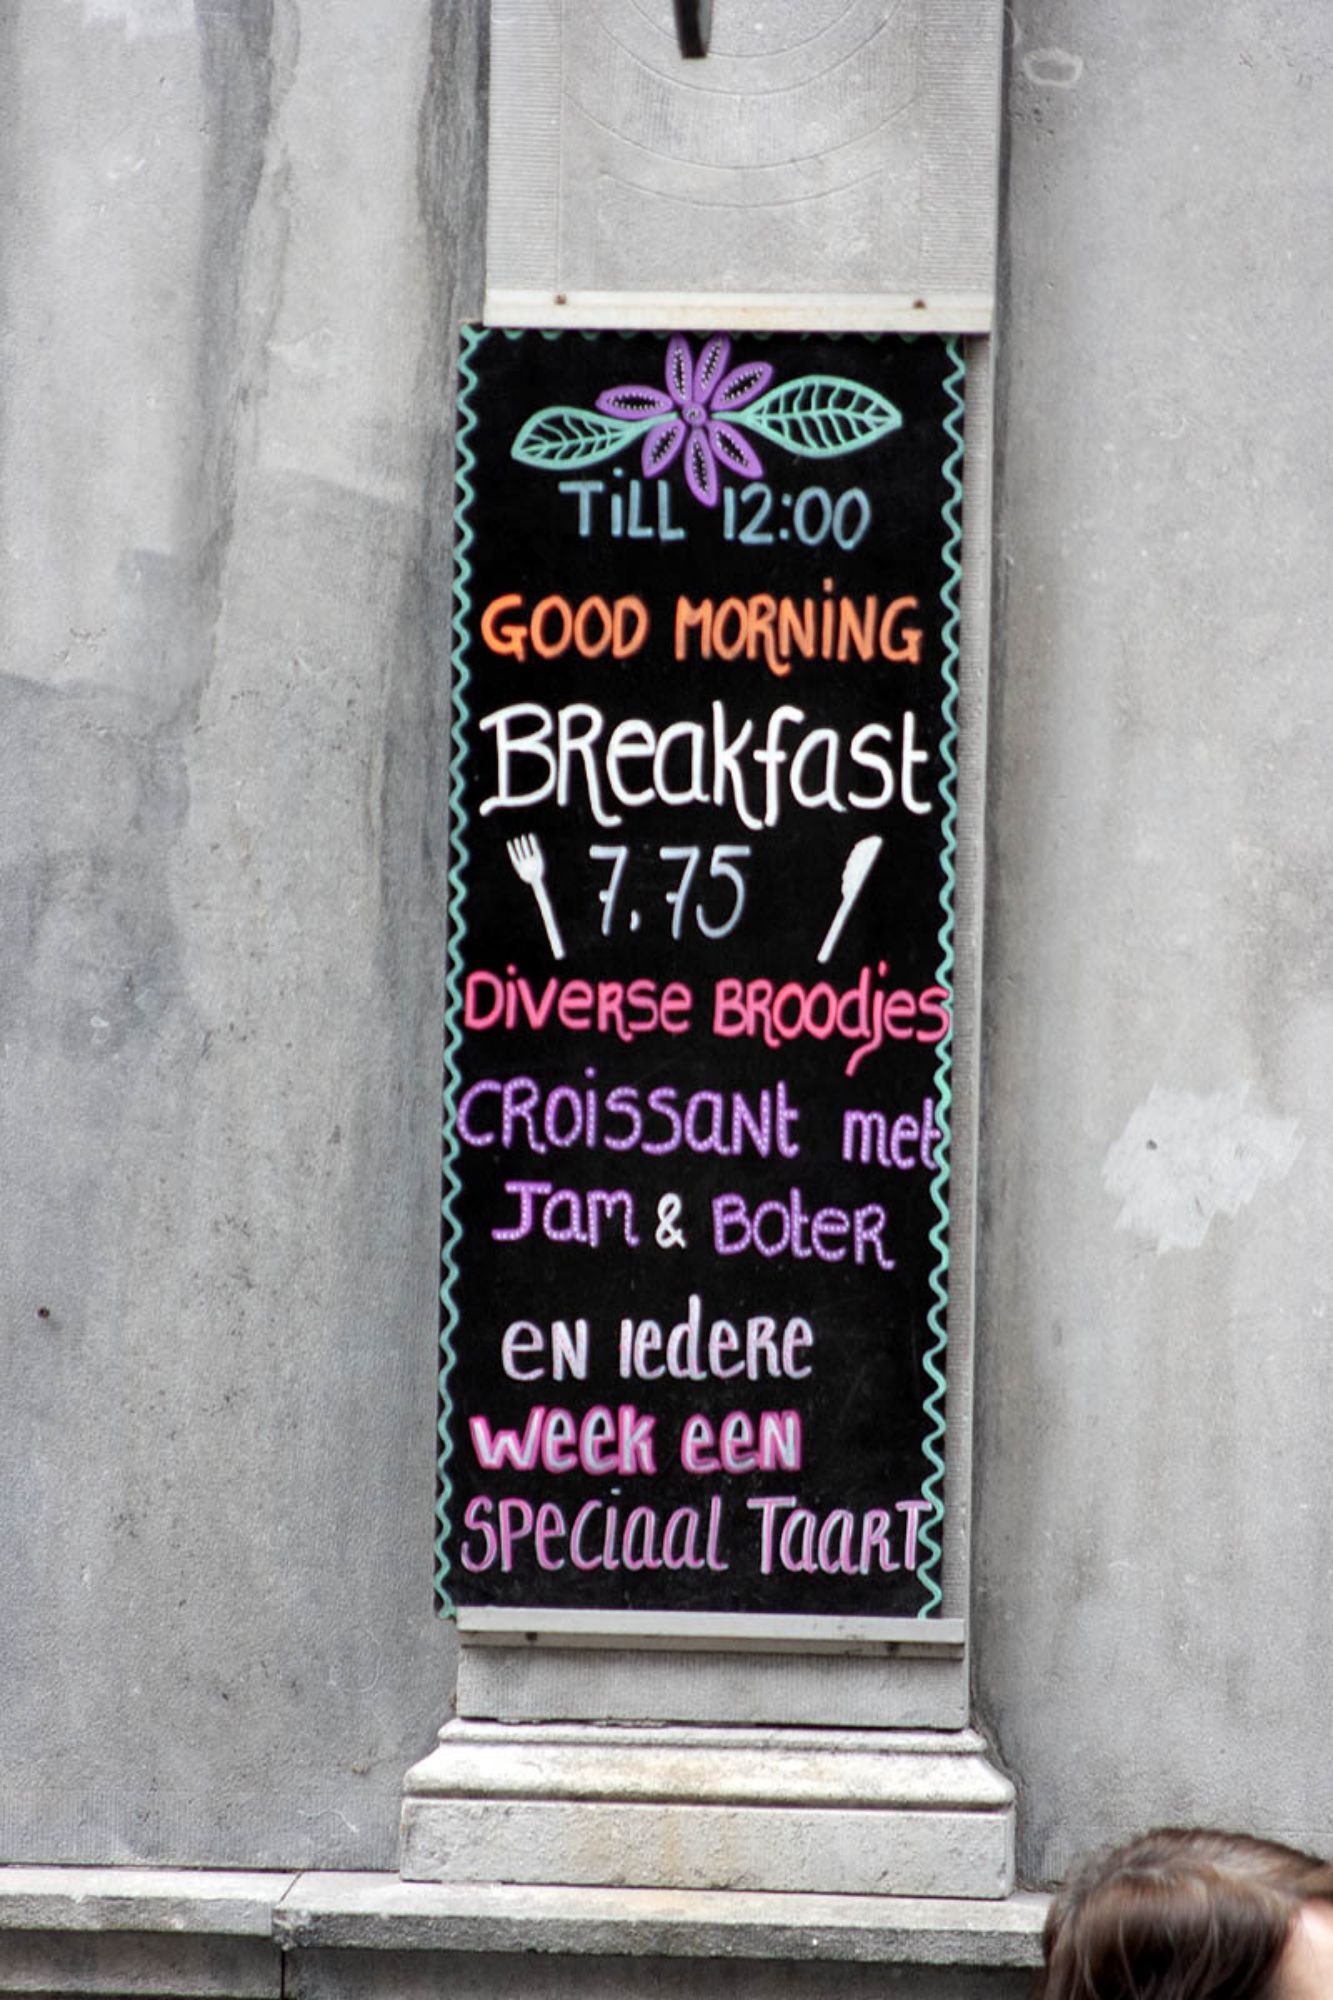 TiLL 12:00
GOOD MORNiNG
BReakfast
7.75
DiveRse BROOdjes
CROissaNt met
Jam & BoteR
eN IedeRe
week eeN
SPeciaal TaaRT